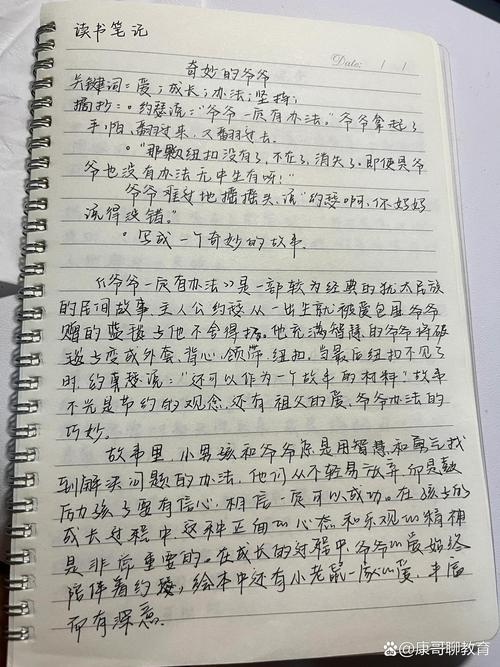 读书笔记
Date: / /
奇妙的爷爷
关键词:爱;成长;办法;坚持;
摘抄:。约瑟说:"爷爷一定有办法。"爷爷拿起了
手帕,翻过来,又翻过去。
。"那颗纽扣没有了,不在了,消失了。即便是爷
爷也没有办法无中生有呀!"
爷爷难过地摇摇头,说"约瑟啊,你妈妈
说得没错。"
。写成一个奇妙的故事.
《爷爷一定有办法》是一部较为经典的犹太民族
的民间故事.主人公约瑟从一出生就被爱包围.爷爷
赠的蓝毯与他不舍得扔。他充满智慧的爷爷将破
毯与变成外套,背心,领带,纽扣,当最后纽扣不见了
时,约瑟说:"还可以作为一个故事的材料"故事
不光是节约的观念,还有祖父的爱,爷爷办法的
巧妙。
故事里,小男孩和爷爷总是用智慧和勇气找
到解决问题的办法,他们从不轻易放弃,而是鼓
励孩子要有信心,相信一定可以成功。在孩子的
成长过程中,这种正面的心态和乐观的精神
是非常重要的。在成长的过程中,爷爷的爱始终
陪伴着约瑟,绘本中还有小老鼠一家的爱,丰富
而有深意.
百家号/康哥聊教育